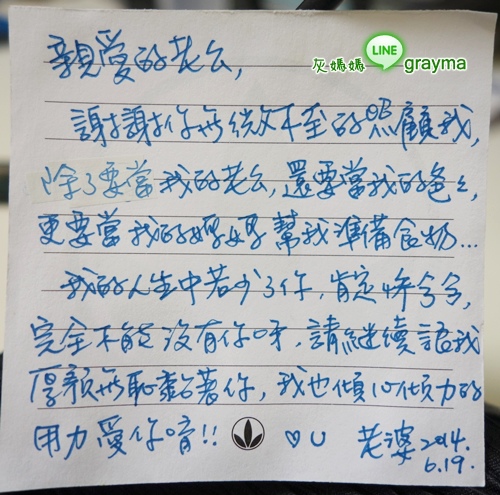 灰媽媽 LINE grayma
親愛的老公,
謝謝你無微不至的照顧我,
除了要當我的老公, 還要當我的爸爸,
更要當我的媽媽幫我準備食物...
我的人生中若少了你, 肯定慘兮兮,
完全不能沒有你呀, 請繼續讓我
厚顏無恥黏著你, 我也傾心傾力的
用力愛你唷!! ♡U 老婆 2014.
6.19.